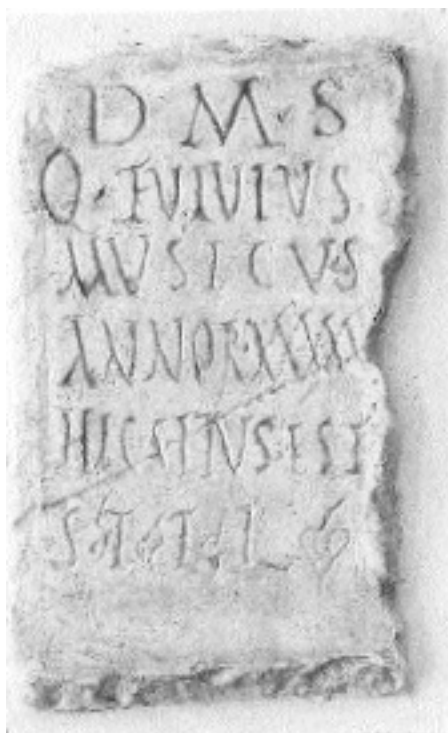 D M · S
Q · FVLVIVS
MVSICVS
ANNOR
HIC SITVS EST
S · T · T · L